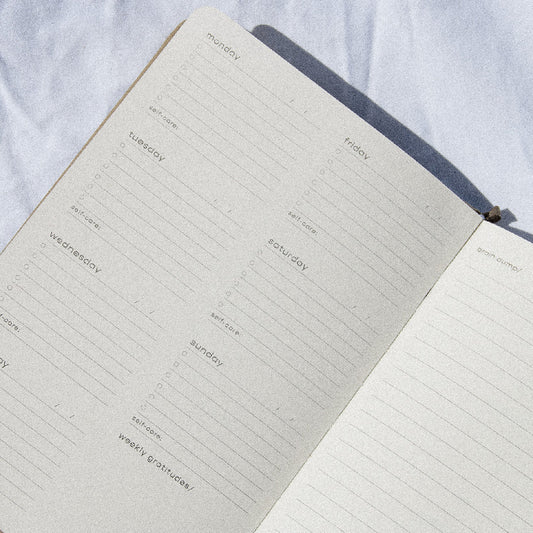 monday
/ /
self-care:
tuesday
/ /
self-care:
wednesday
/ /
self-care:
ay
/ /
friday
/ /
self-care:
saturday
/ /
self-care:
sunday
/ /
self-care:
weekly gratitudes/
brain dump/